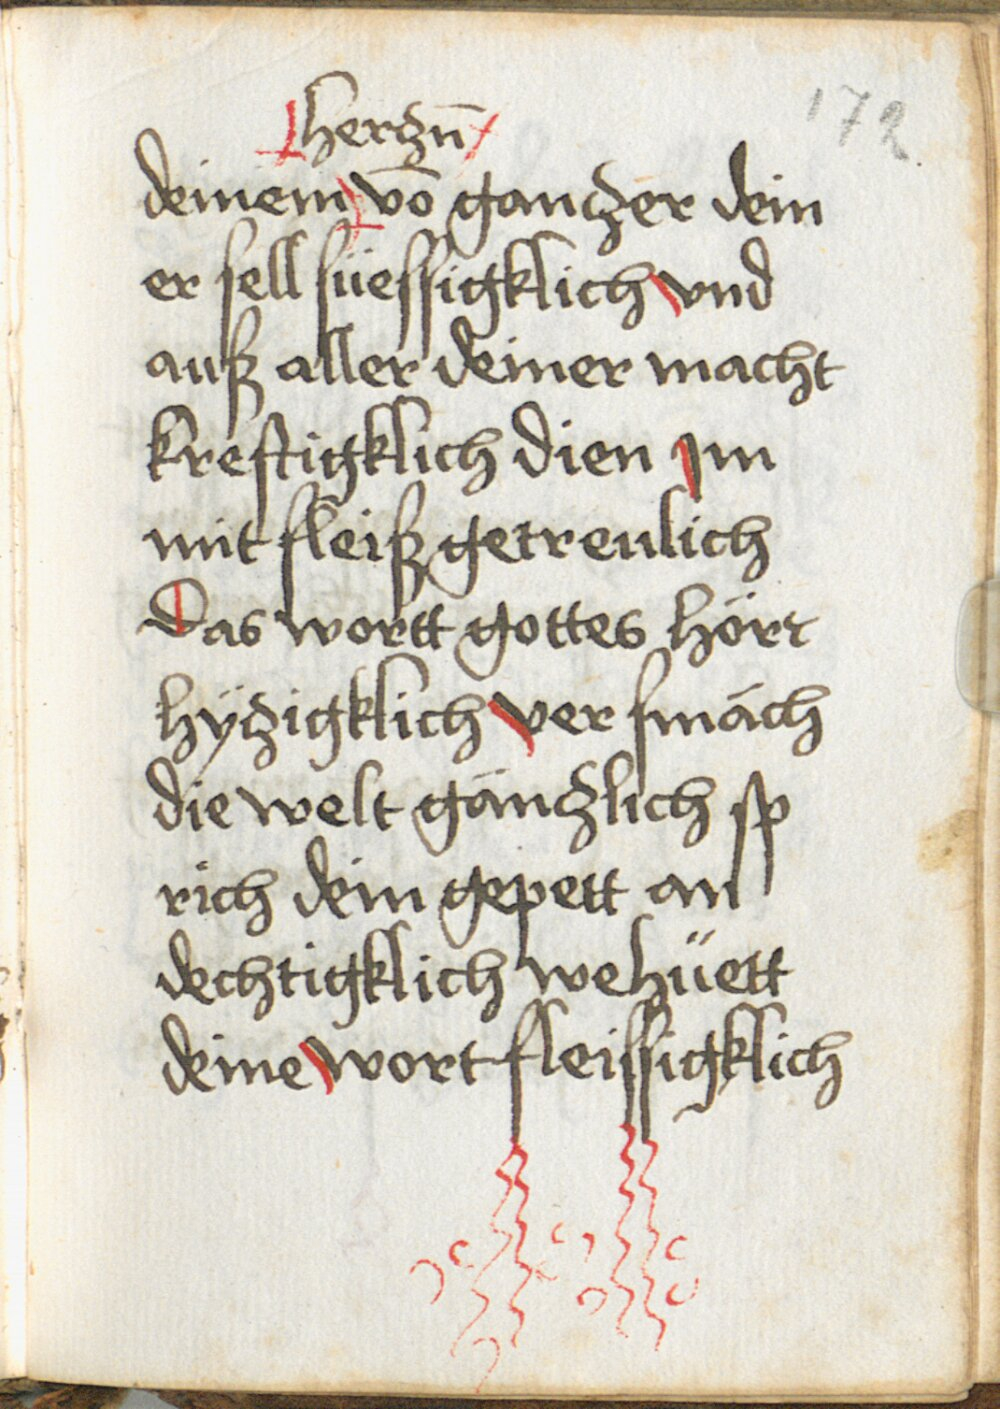 172
herczn̄
deinem vō ganczer dein
er sell süessigklich vnd
auß aller deiner macht
kreftigklich dien Im
mit fleiß getreulich
Das wortt gottes hört
hÿczigklich ver smäch
die welt gänczlich sp
rich dein gepett an
dechtigklich wehüett
deine wort fleissigklich